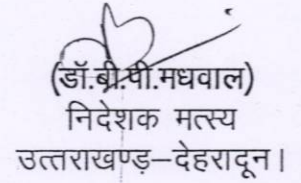 (डॉ.बी.पी.मधवाल)
निदेशक मत्स्य
उत्तराखण्ड़–देहरादून।